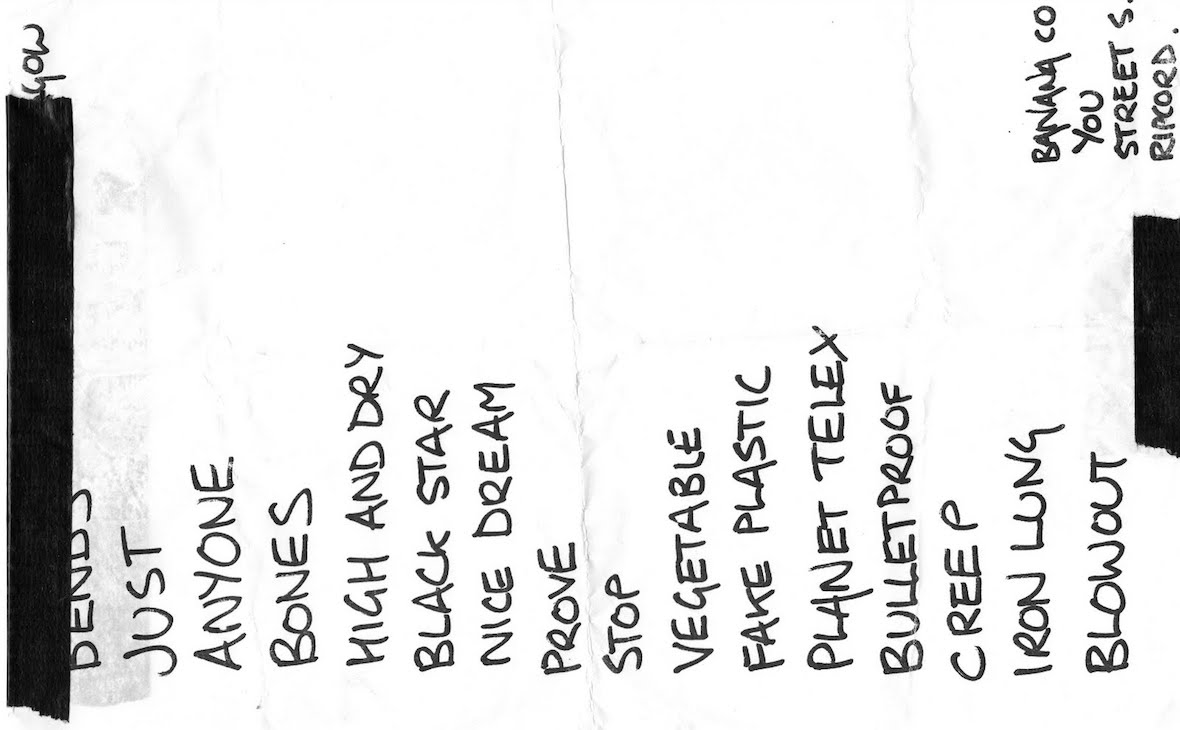 GOW
BENDS
JUST
ANYONE
BONES
HIGH AND DRY
BLACK STAR
NICE DREAM
PROVE
STOP
VEGETABLE
FAKE PLASTIC
PLANET TELEX
BULLETPROOF
CREEP
IRON LUNG
BLOWOUT
BANANA CO
YOU
STREET S.
RIPCORD.